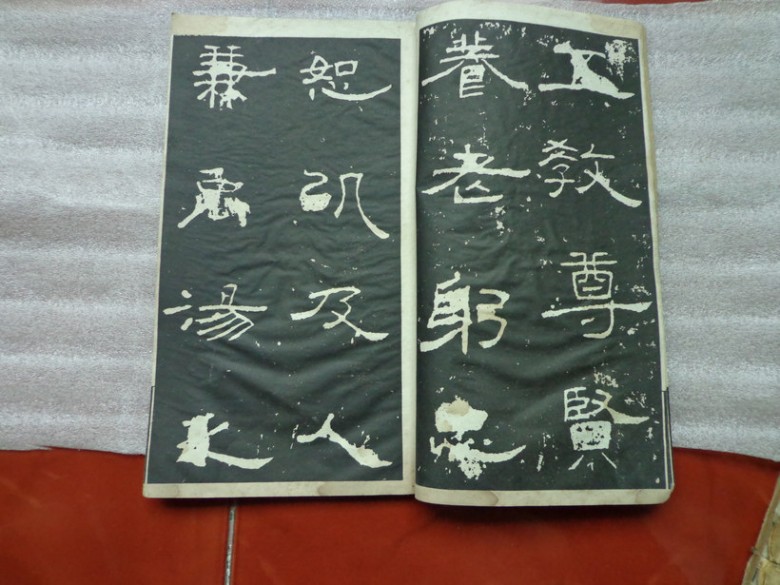 五教尊賢
養老躬忠
恕以及人
兼禹湯之